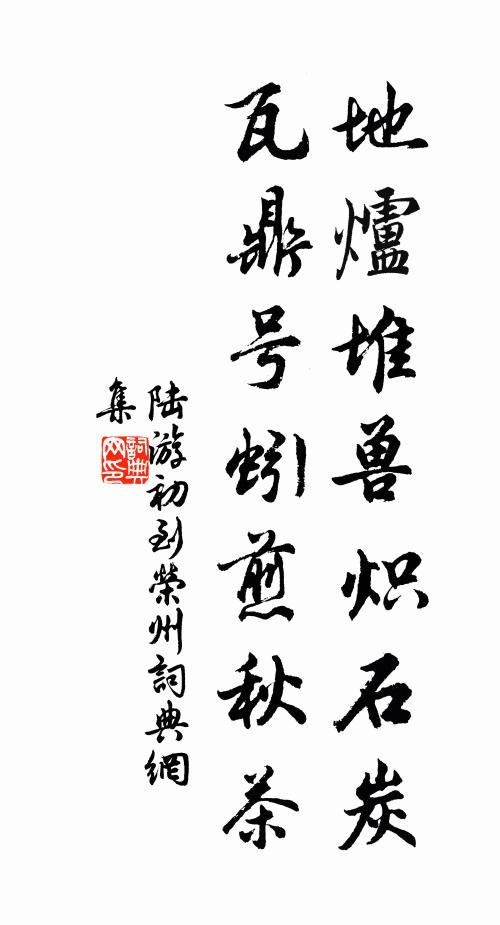 地爐堆兽炽石炭
瓦鼎号蚓煎秋茶
陆游初到榮州詞典網
集
詞典网印